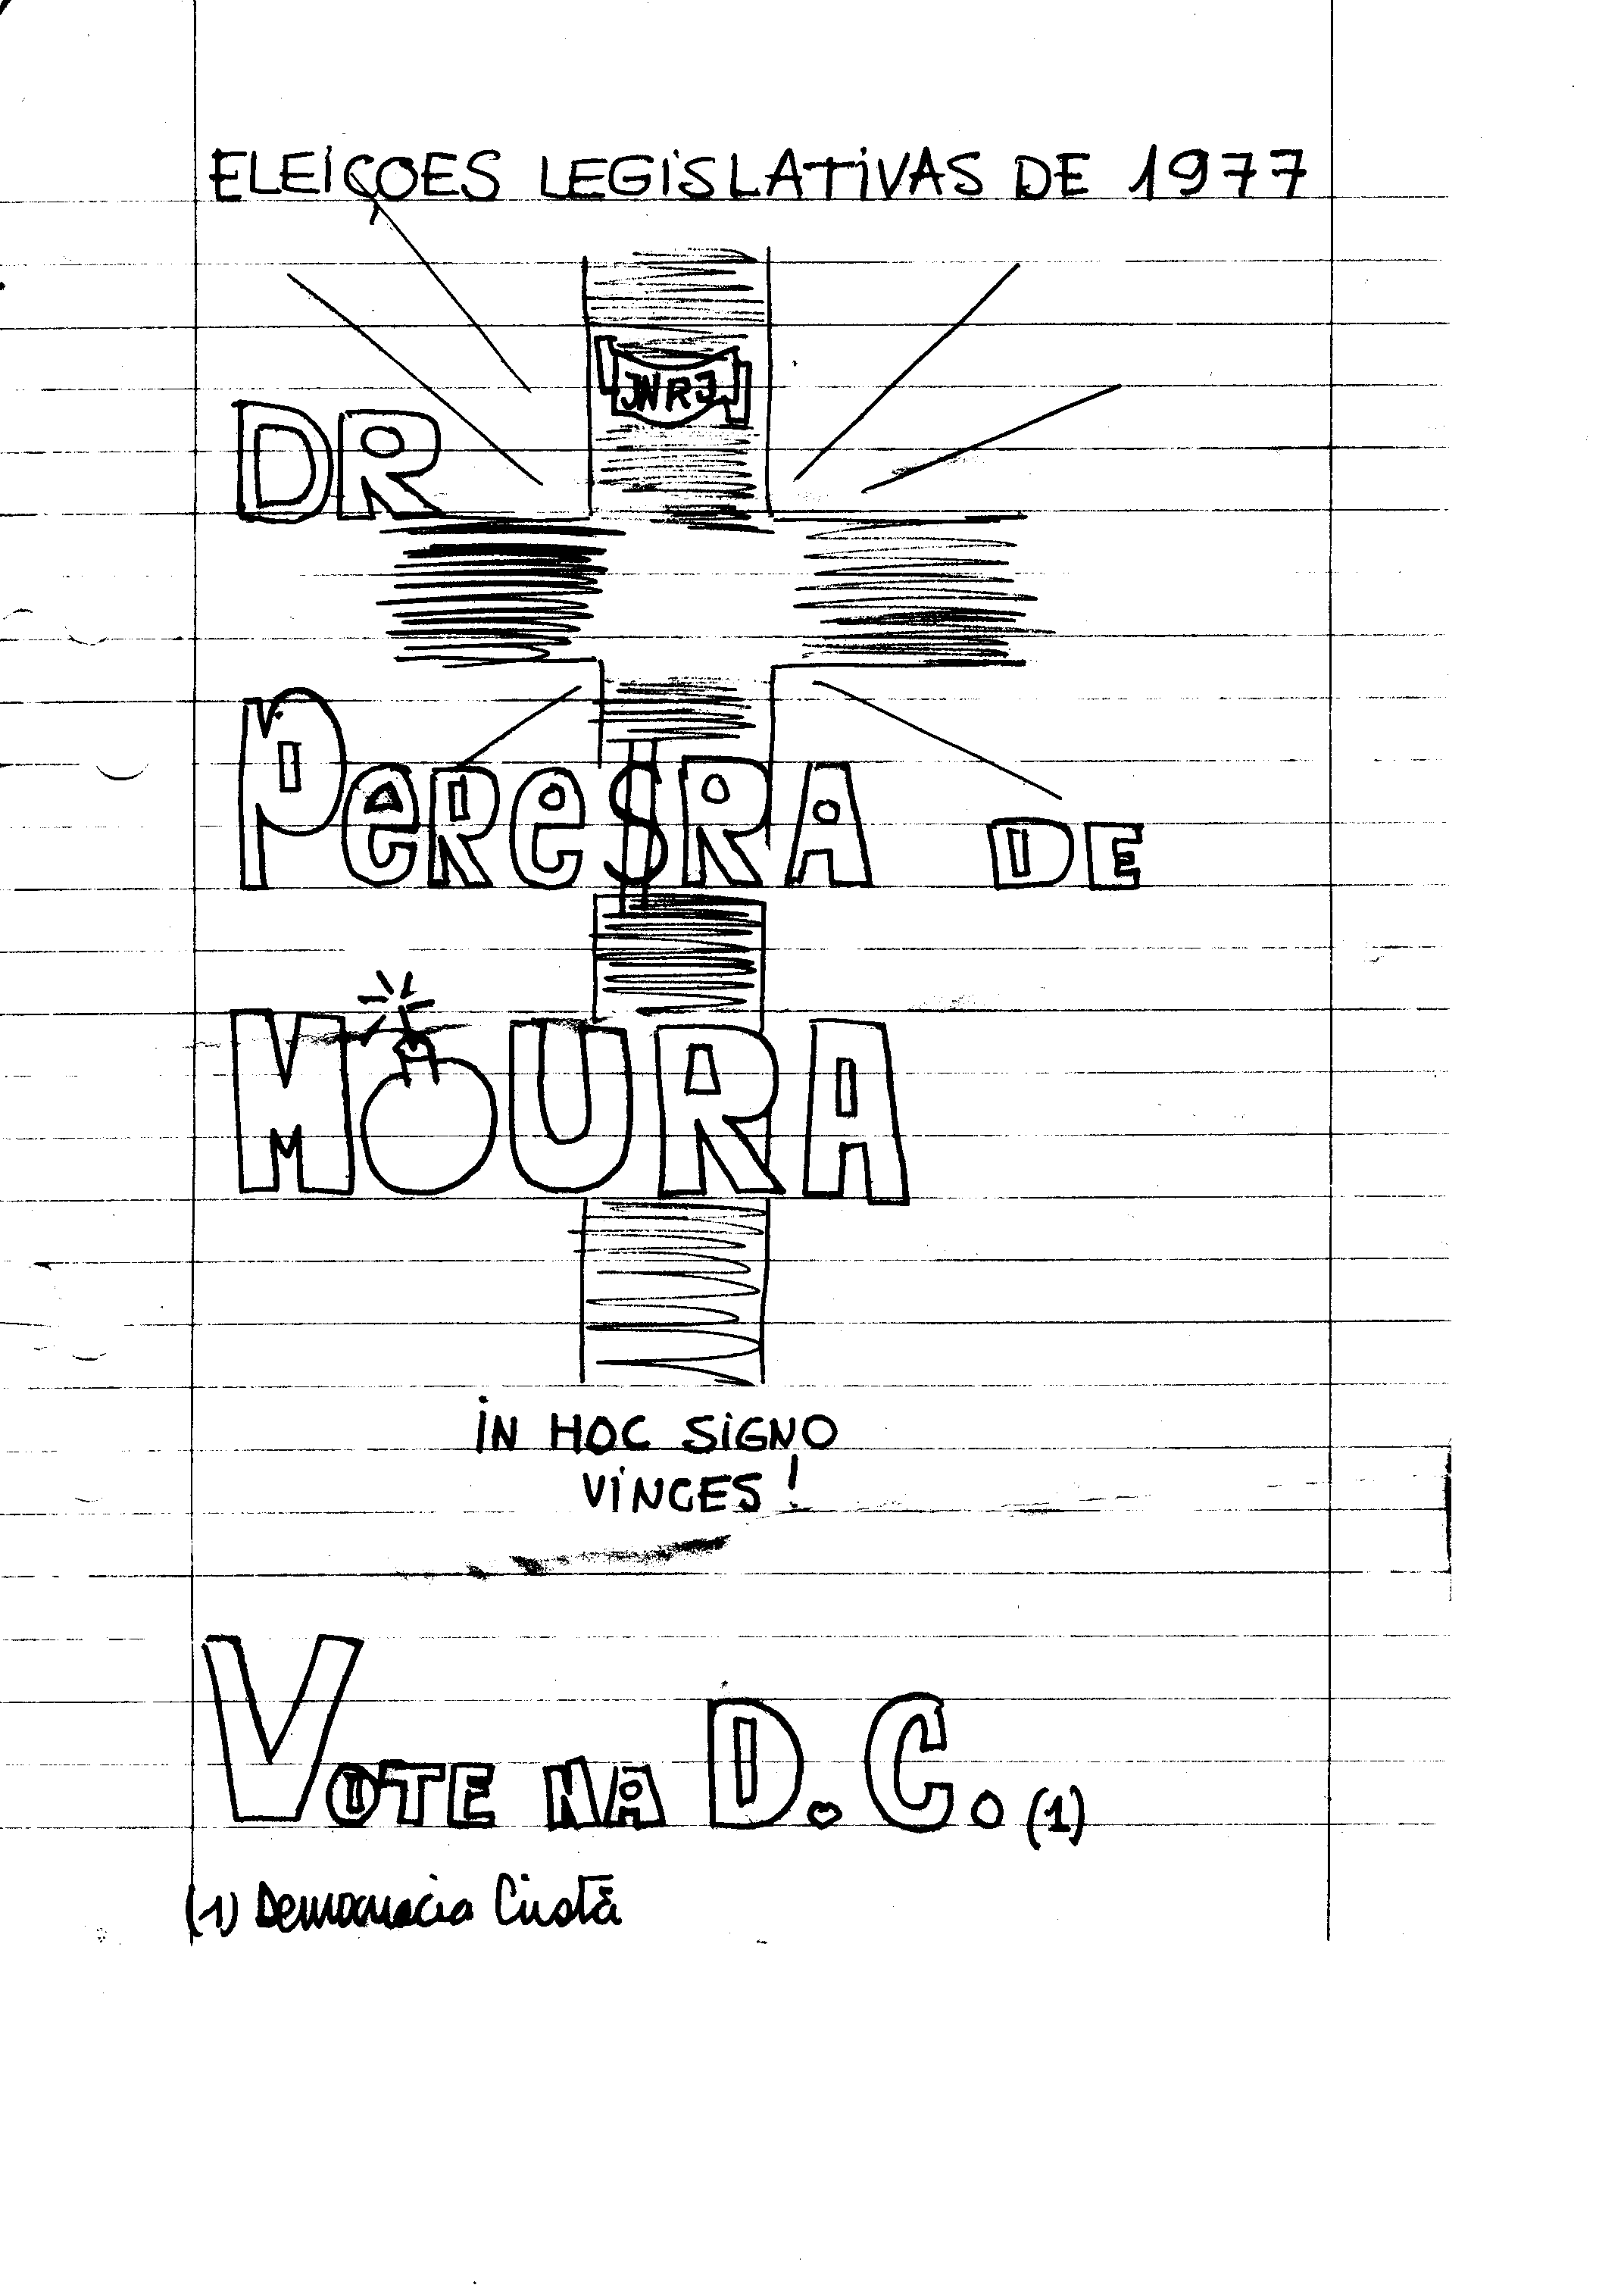 ELEIÇOES LEGISLATIVAS DE 1977
JNRJ
DR
PERE$RA DE
MOURA
IN HOC SIGNO
VINCES!
VOTE NA D.C.(1)
(1) Democracia Cristã